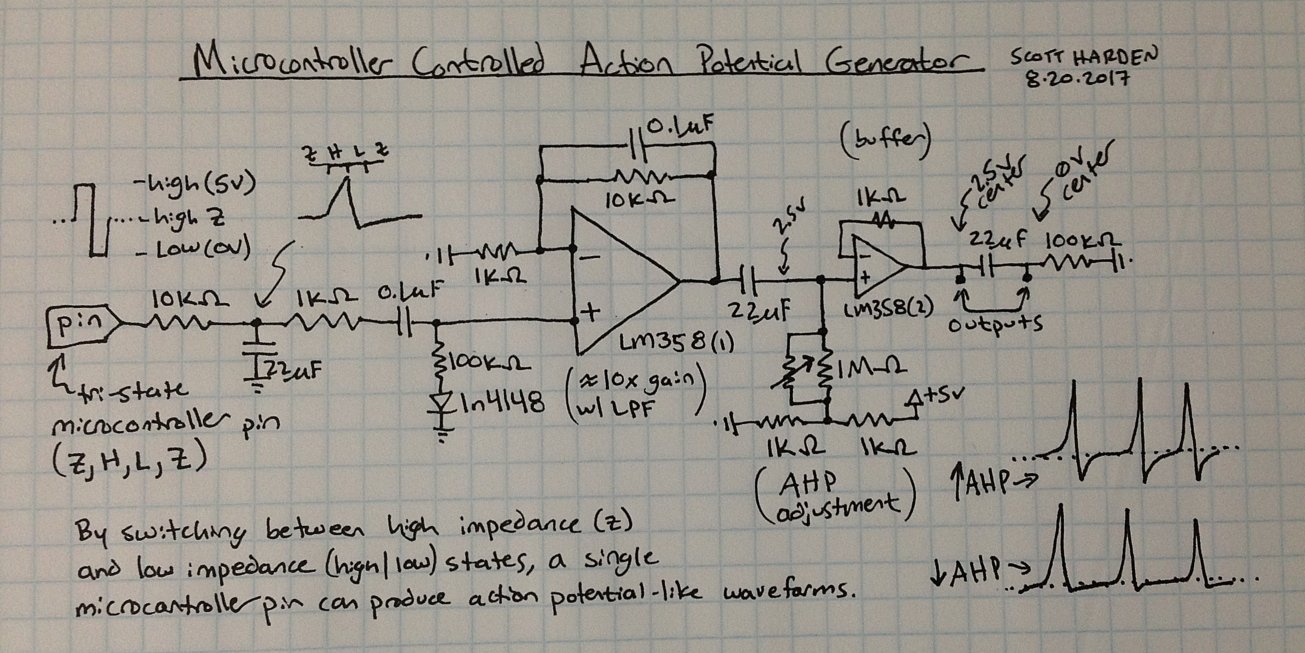 Microcontroller Controlled Action Potential Generator
SCOTT HARDEN
8.20.2017
Z H L Z
-high (5V)
-high Z
-Low (0V)
0.1uF
10KΩ
1KΩ
(buffer)
2.5V
1KΩ
2.5V
center
0V
center
22uF
100KΩ
10KΩ
1KΩ
0.1uF
pin
22uF
22uF
LM358(2)
outputs
LM358(1)
tri-state
microcontroller pin
(Z, H, L, Z)
100KΩ
1n4148
(≈10x gain
w/ LPF)
1MΩ
+5V
1KΩ
1KΩ
(AHP
adjustment)
↑AHP→
↓AHP→
By switching between high impedance (Z)
and low impedance (high/low) states, a single
microcontroller pin can produce action potential-like waveforms.